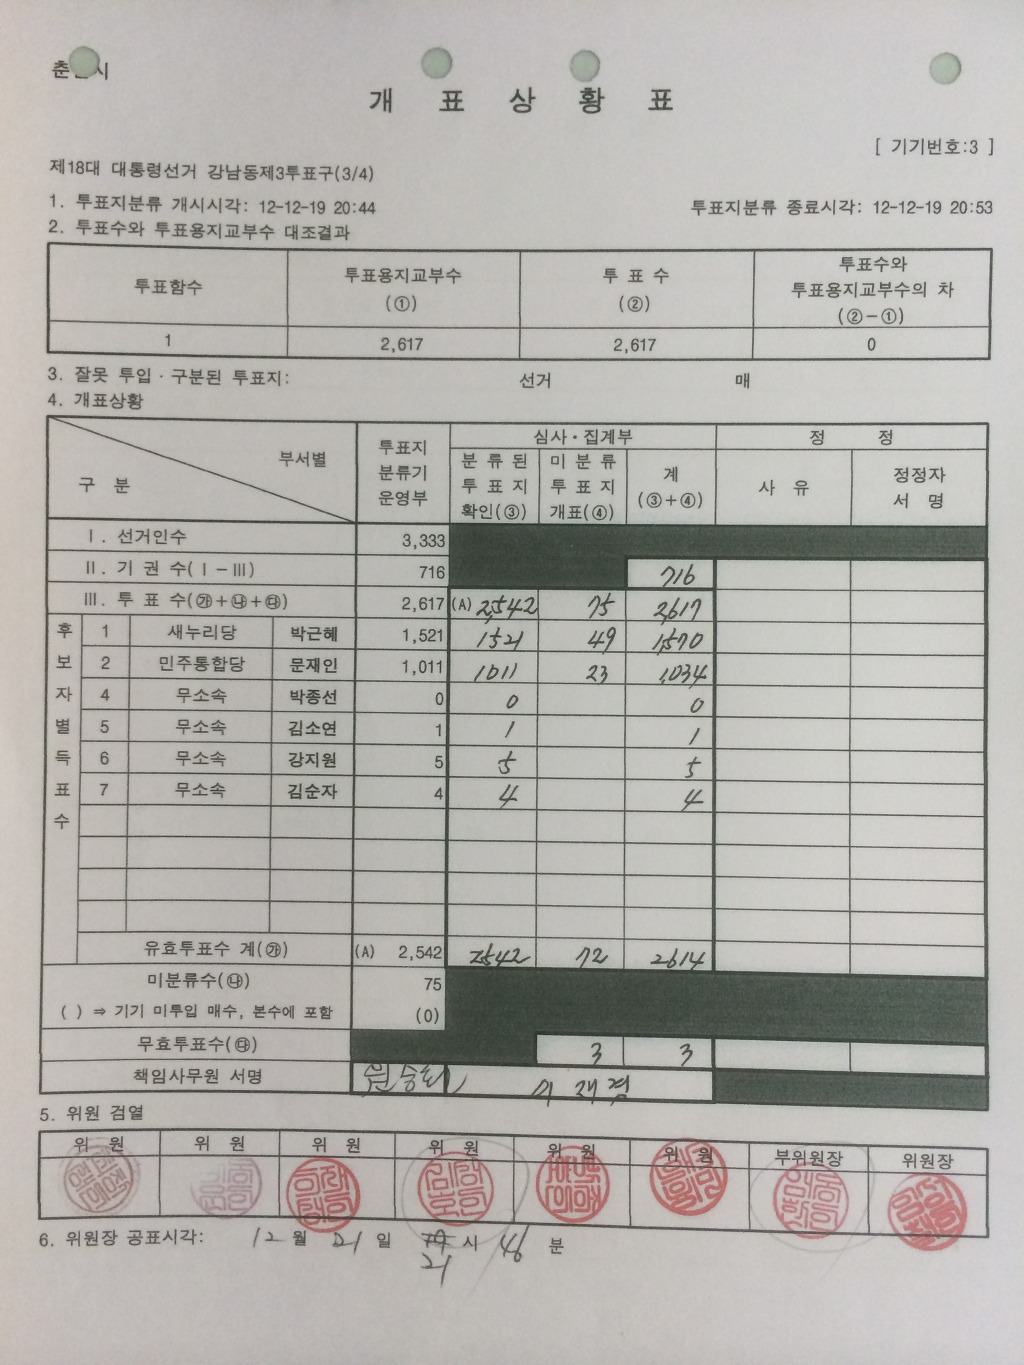 개 표 상 황 표
[ 기기번호:3 ]
제18대 대통령선거 강남동제3투표구(3/4)
1. 투표지분류 개시시각: 12-12-19 20:44 투표지분류 종료시각: 12-12-19 20:53
2. 투표수와 투표용지교부수 대조결과
투표함수 투표용지교부수 (①) 투 표 수 (②) 투표수와 투표용지교부수의 차 (②-①)
1 2,617 2,617 0
3. 잘못 투입·구분된 투표지: 선거 매
4. 개표상황
구 분 부서별 투표지 분류기 운영부 심사·집계부 정 정
분 류 된 투 표 지 확인(③) 미 분 류 투 표 지 개표(④) 계 (③+④) 사 유 정정자 서 명
Ⅰ. 선거인수 3,333
Ⅱ. 기 권 수(Ⅰ-Ⅲ) 716 716
Ⅲ. 투 표 수(㉮+㉯+㉰) 2,617 (A) 2,542 75 2,617
후보자별득표수
1 새누리당 박근혜 1,521 1521 49 1,570
2 민주통합당 문재인 1,011 1011 23 1,034
4 무소속 박종선 0 0 0
5 무소속 김소연 1 1 1
6 무소속 강지원 5 5 5
7 무소속 김순자 4 4 4
유효투표수 계(㉮) (A) 2,542 2542 72 2614
미분류수(㉯) 75
( ) ⇒ 기기 미투입 매수, 본수에 포함 (0)
무효투표수(㉰) 3 3
책임사무원 서명
5. 위원 검열
위 원 위 원 위 원 위 원 위 원 위 원 부위원장 위원장
6. 위원장 공표시각: 12 월 21 일 시 46 분
21